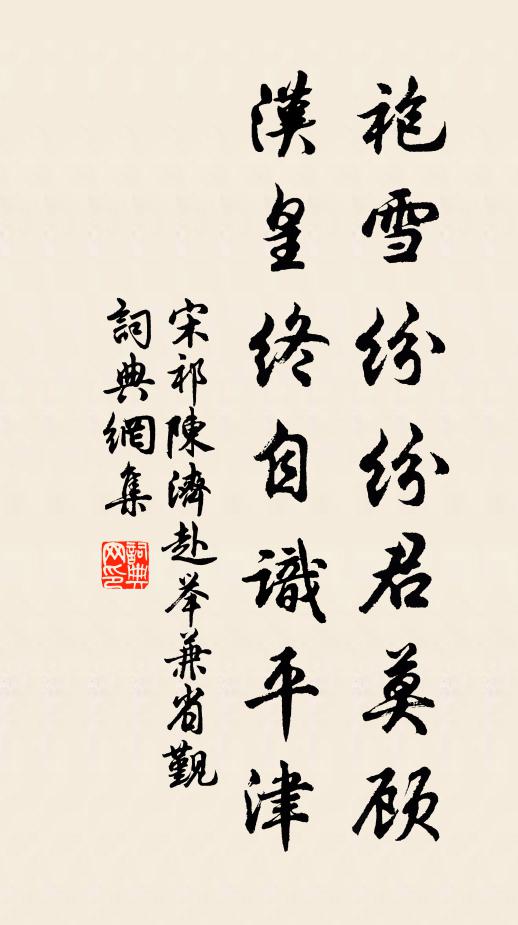 袍雪紛紛君莫顾
漢皇終自識平津
宋祁陳濟赴举兼省覲
詞典網集
詞典网印